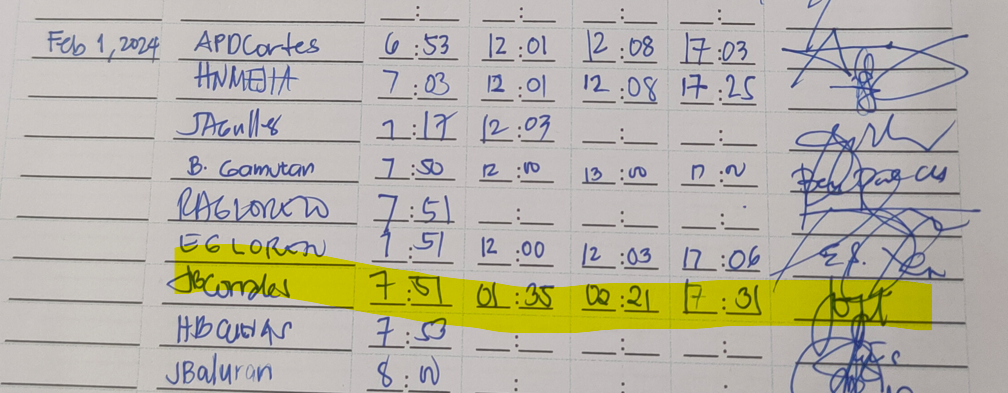 Feb 1, 2024 APDCortes 6:53 12:01 12:08 17:03
HNMEJIA 7:03 12:01 12:08 17:25
JAGulles 7:17 12:03 : :
B. Gamutan 7:50 12:00 13:00 17:00
RAGLOREN 7:51 : : :
EGLOREN 7:51 12:00 12:03 17:06
JBCorrales 7:51 01:35 02:21 17:31
HBCUEVAS 7:53 : : :
JBaluran 8:00 : : :